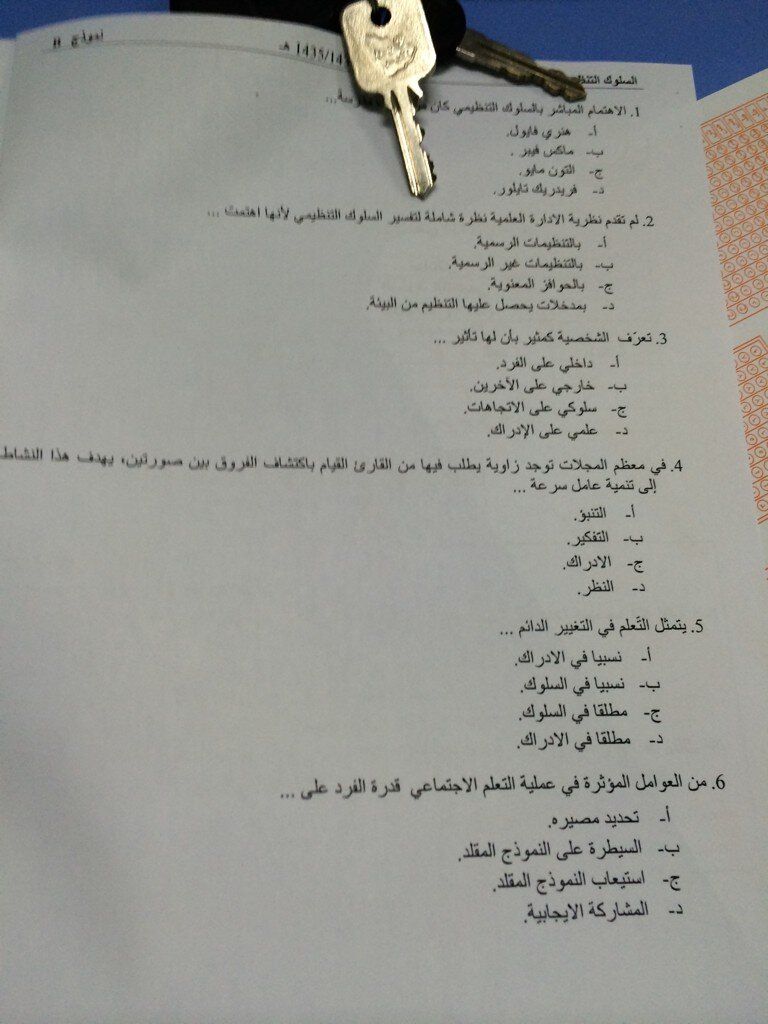 السلوك التنظ
1435/14 هـ
نموذج B
1. الاهتمام المباشر بالسلوك التنظيمي كان ...
أ- هنري فايول.
ب- ماكس فيبر .
ج- التون مايو.
د- فريدريك تايلور.
2. لم تقدم نظرية الادارة العلمية نظرة شاملة لتفسير السلوك التنظيمي لأنها اهتمت ...
أ- بالتنظيمات الرسمية.
ب- بالتنظيمات غير الرسمية.
ج- بالحوافز المعنوية.
د- بمدخلات يحصل عليها التنظيم من البيئة.
3. تعرّف الشخصية كمثير بأن لها تأثير ...
أ- داخلي على الفرد.
ب- خارجي على الآخرين.
ج- سلوكي على الاتجاهات.
د- علمي على الإدراك.
4. في معظم المجلات توجد زاوية يطلب فيها من القارئ القيام باكتشاف الفروق بين صورتين، يهدف هذا النشاط
إلى تنمية عامل سرعة ...
أ- التنبؤ.
ب- التفكير.
ج- الادراك.
د- النظر.
5. يتمثل التّعلم في التغيير الدائم ...
أ- نسبيا في الادراك.
ب- نسبيا في السلوك.
ج- مطلقا في السلوك.
د- مطلقا في الادراك.
6. من العوامل المؤثرة في عملية التعلم الاجتماعي قدرة الفرد على ...
أ- تحديد مصيره.
ب- السيطرة على النموذج المقلد.
ج- استيعاب النموذج المقلد.
د- المشاركة الايجابية.